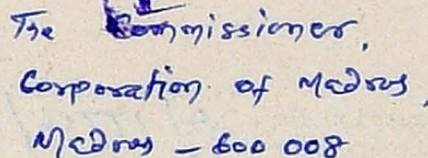 The Commissioner,
Corporation of Madras,
Madras - 600 008